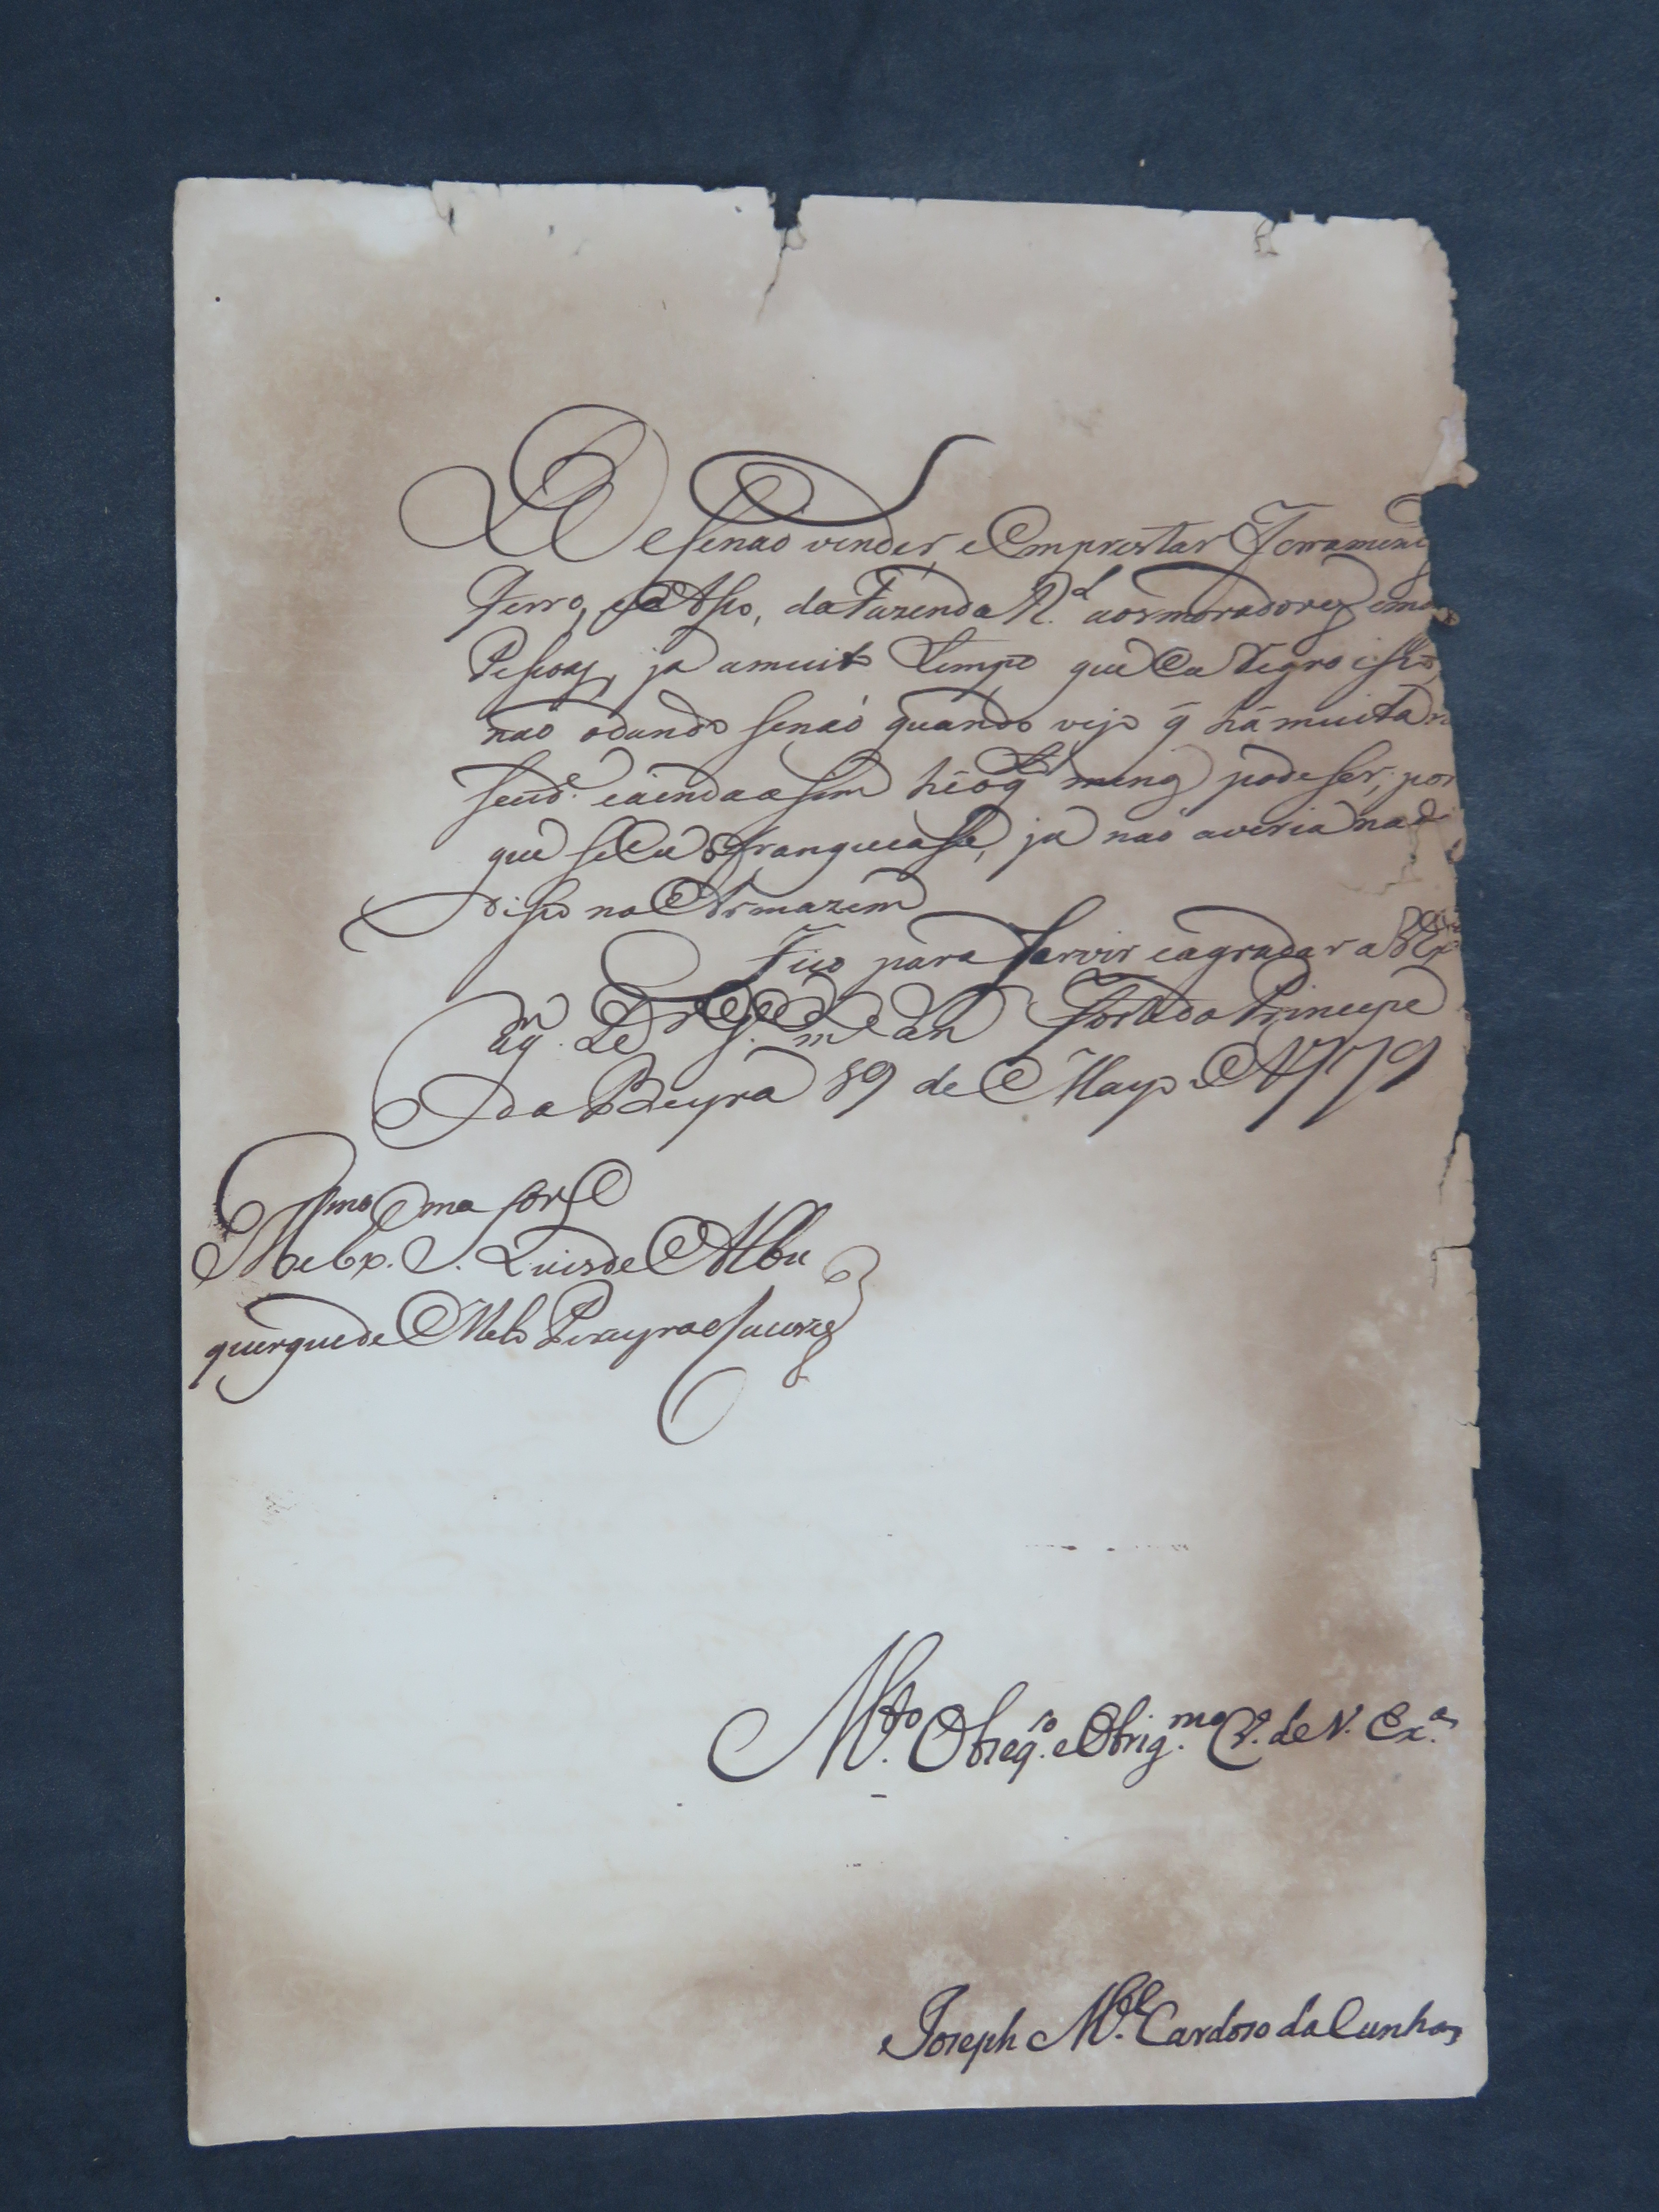 De senaõ vender, e Emprestar Ferramen
Ferro, e Asso, da Fazenda R.l aos moradores, e mais
Pessoas, ja a muito tempo que Eu Negro isso,
naõ o dando senaõ quando vejo q̃ hâ muita n
send.e e ainda asim hé o q̃ menos pode ser, por
que se Eu o franqueasse, ja naõ averia nad
disso no Armazem
Fico para servir e agradar a V Ex.a
aq.m D.s g.e m. an Forte do Principe
da Beyra 19 de Mayo de 1779
Ill.mo e Ex.mo Snr
Luis de Albu
querque de Mello Pereyra e Caceres
M.to Obseq.ro e Obrig.mo C. de V. Ex.a
Joseph M.el Cardoso da Cunha